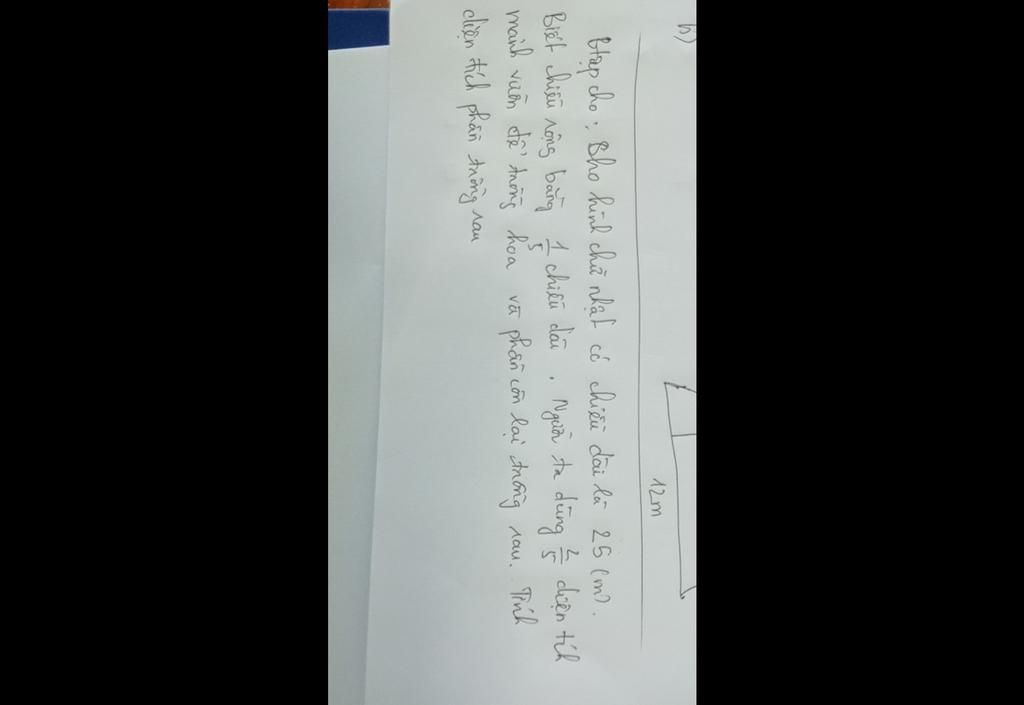 b)
12m
Btập cho: Bho hình chữ nhật có chiều dài là 25 (m).
Biết chiều rộng bằng 1/5 chiều dài. Người ta dùng 2/5 diện tích
mảnh vườn để trồng hoa và phần còn lại trồng rau. Tính
diện tích phần trồng rau